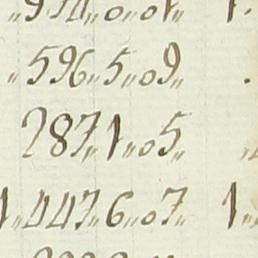 „596„5„09„
287„1„05„
1„447„6„07„ 1„